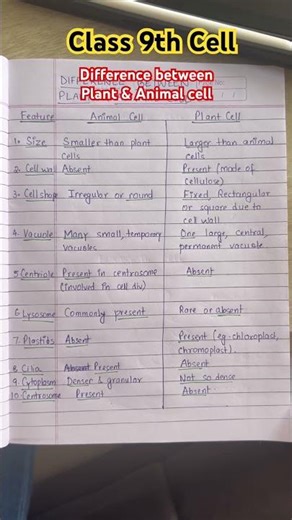 Class 9th Cell
Difference between
Plant & Animal cell
DIFFERENCE BETWEEN
Feature Animal Cell Plant Cell
1. Size Smaller than plant cells Larger than animal cells
2. Cell wall Absent Present (made of cellulose)
3. Cell shape Irregular or round Fixed, Rectangular or square due to cell wall
4. Vacuole Many small, temporary vacuoles One large, central, permanent vacuole
5. Centriole Present in centrosome (involved in cell div) Absent
6. Lysosome Commonly present Rare or absent
7. Plastids Absent Present (eg-chloroplast, chromoplast).
8. Cilia Absent Present Absent
9. Cytoplasm Denser & granular Not so dense
10. Centrosome Present Absent